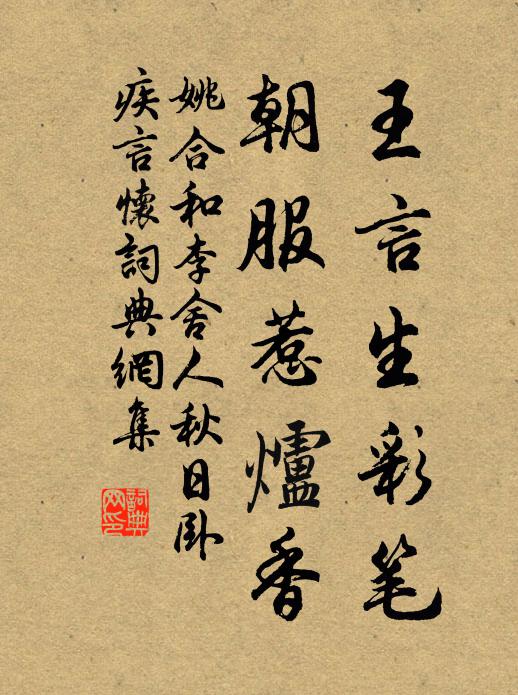 王言生彩笔
朝服惹爐香
姚合和李舍人秋日卧
疾言懷詞典網集
詞典
网印